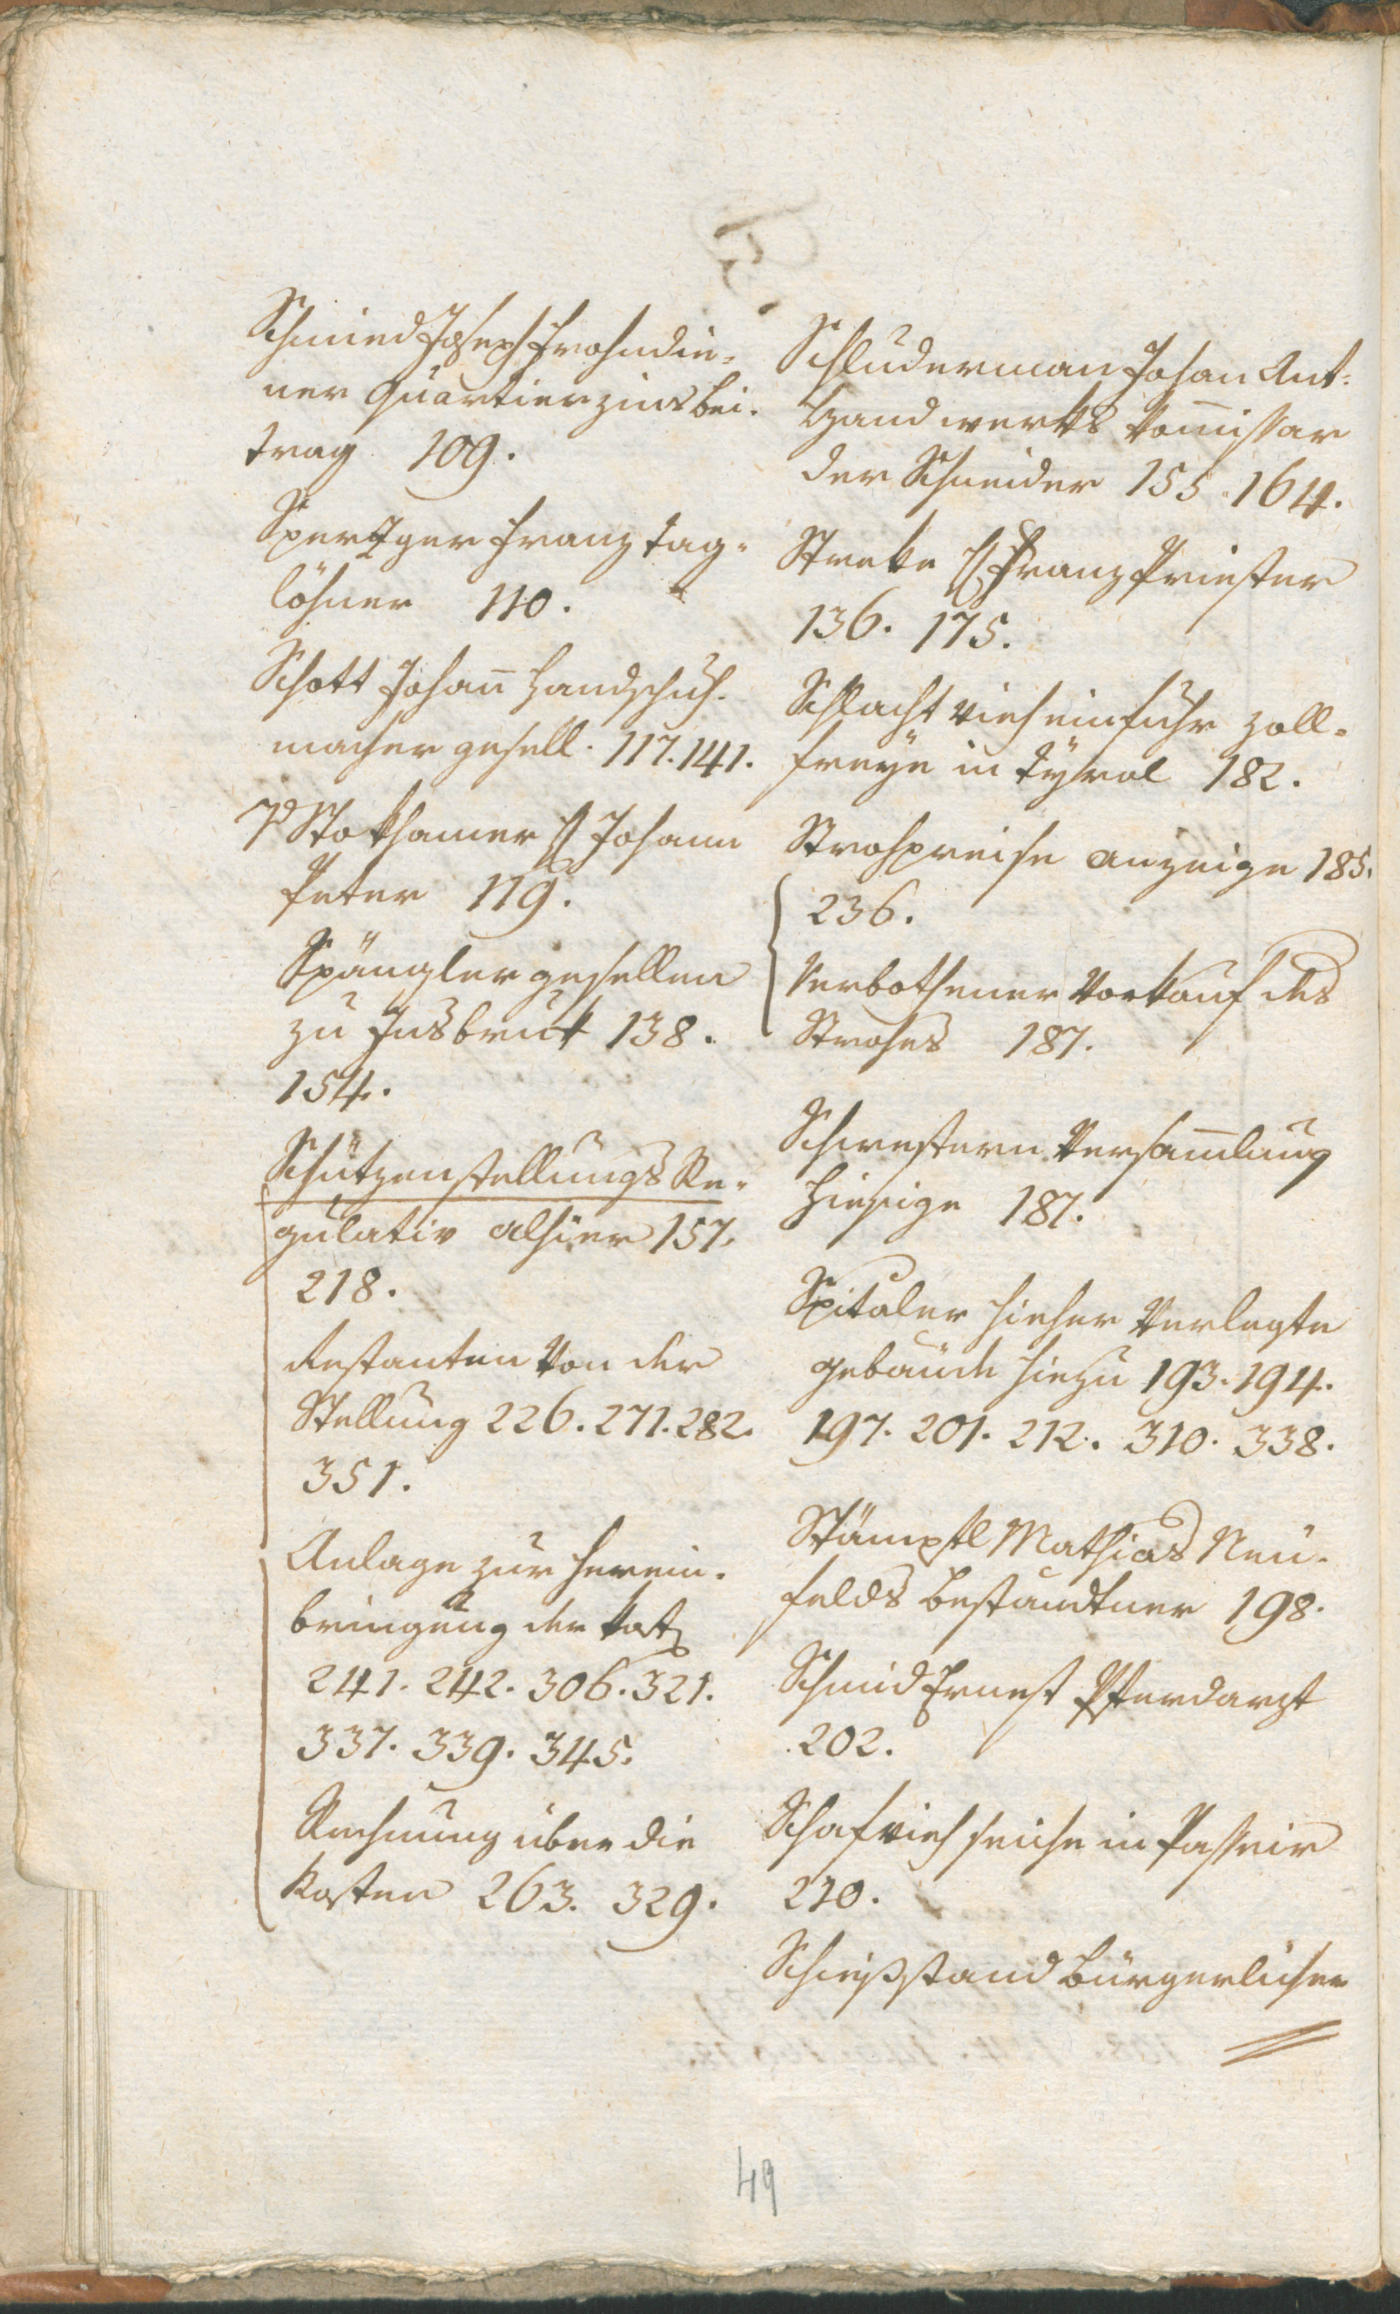 Schmied Joseph Frohndie-
ner Quartierzinsbei-
trag 109.
Spertger Franz Tag-
löhner 110.
Schott Johann Handschuh-
macher gesell. 117. 141.
Stokhamer Johann
Peter 119.
Spänglergesellen
zu Insbruk 138.
154.
Schützenstellungs Re-
gulativ alhier 157.
218.
Restanten von der
Stellung 226. 271. 282.
351.
Anlage zur Herein-
bringung der
241. 242. 306. 321.
337. 339. 345.
Rechnung über die
Kosten 263. 329.
Schluderman Johan Ant.
Handwerks Kommissar
der Schneider 155. 164.
Strete Franz Priester
136. 175.
Schlacht vieheinfuhr zoll-
freye in Tyrol 182.
Strohpreise anzeige 185.
236.
Verbothener Vorkauf des
Strohes 187.
Schwestern Versammlung
hiesige 187.
Spitaler hieher Verlegte
gebäude hiezu 193. 194.
197. 201. 212. 310. 338.
Stämpfl Mathias Neu-
felds Bestandtner 198.
Schmid Ernest Pferdarzt
202.
Schafvieh seiche in Passeir
210.
Schießstand bürgerlicher
49